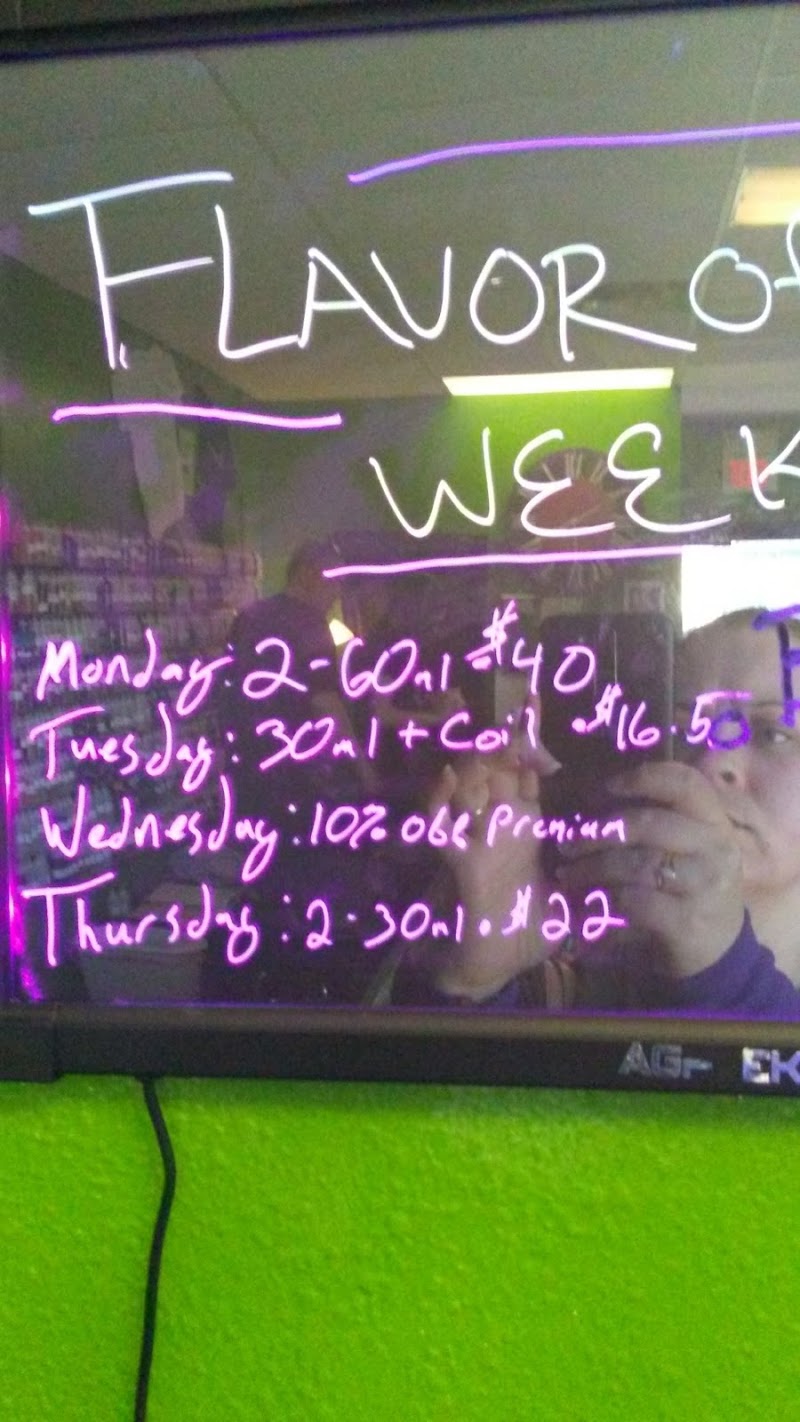 FLAVOR of
WEEK
Monday: 2-60ml $40
Tuesday: 30ml + Coil $16.50
Wednesday: 10% off Premium
Thursday: 2-30ml $22